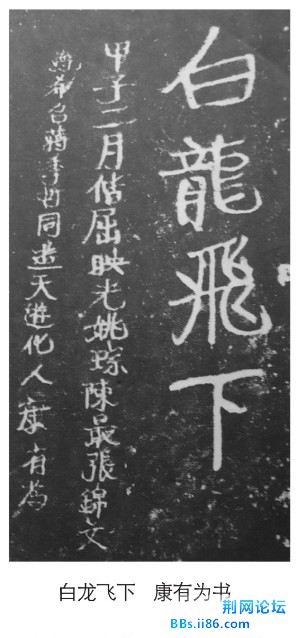 白龍飛下
甲子二月偕屈映光姚琮陳最張錦文
希召蔣季哲同遊天游化人康有為
白龙飞下 康有为书
荆网论坛
BBs.ii86.com